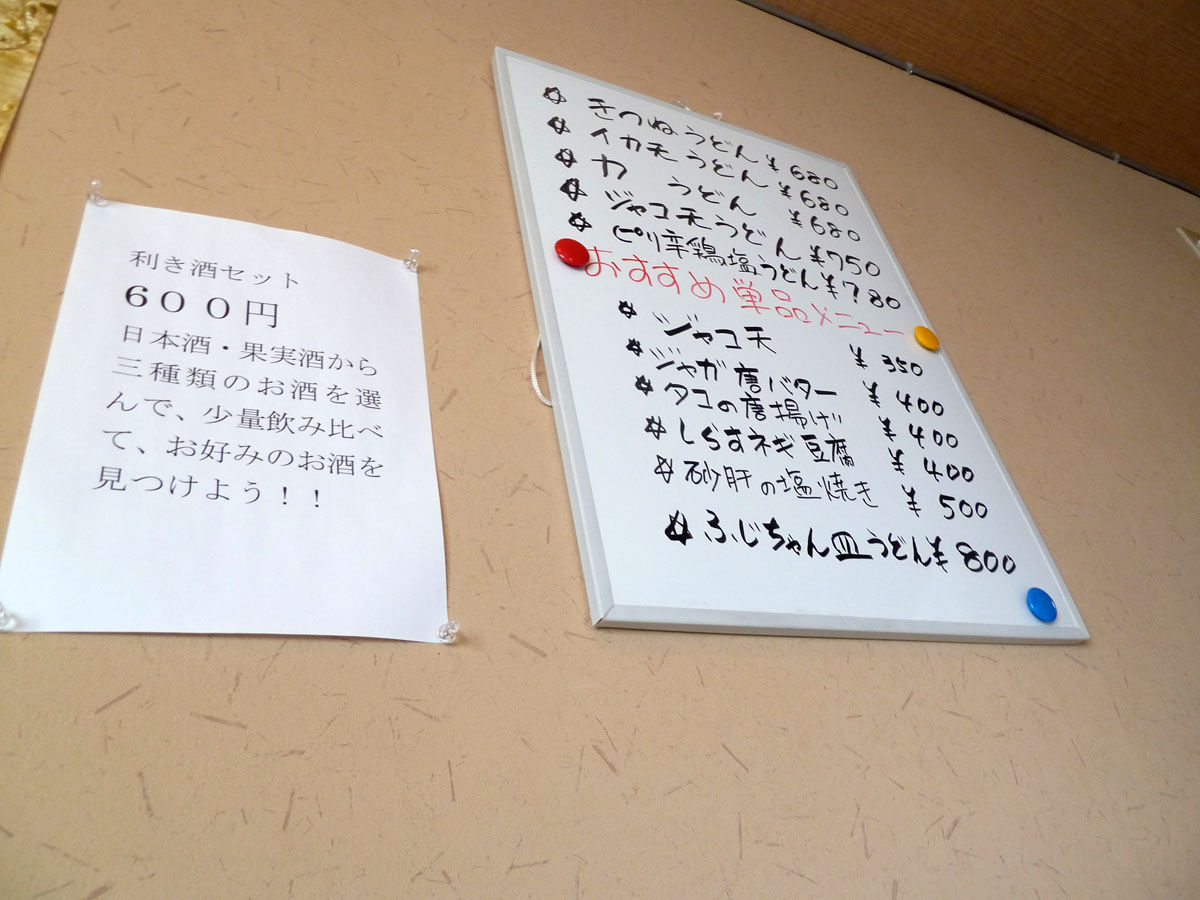 利き酒セット
600円
日本酒・果実酒から
三種類のお酒を選
んで、少量飲み比べ
て、お好みのお酒を
見つけよう！！
きつねうどん ¥680
イカ天うどん ¥680
力 うどん ¥680
ジャコ天うどん ¥750
ピリ辛鶏塩うどん ¥780
おすすめ単品メニュー
ジャコ天 ¥350
ジャガ唐バター ¥400
タコの唐揚げ ¥400
しらすネギ豆腐 ¥400
砂肝の塩焼き ¥500
ふじちゃん皿うどん ¥800